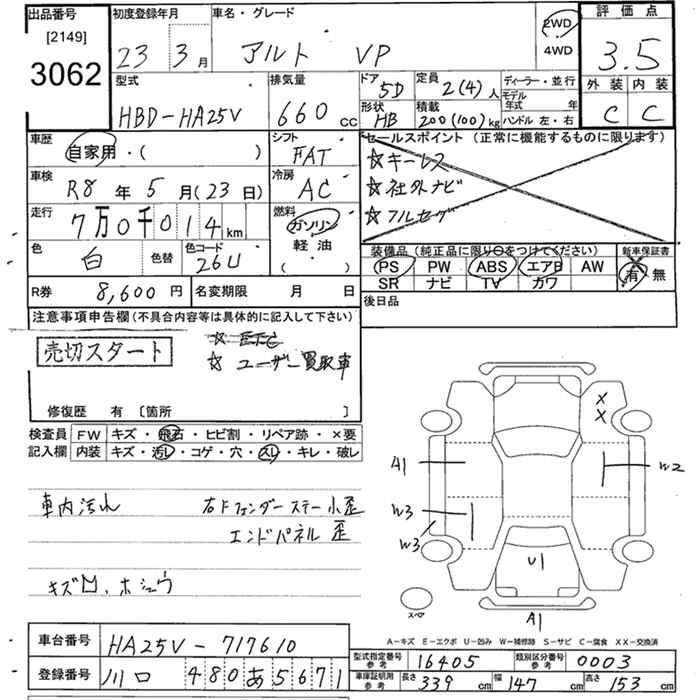 出品番号 初度登録年月 車名・グレード 評価点
[2149]
3062
23 3月 アルト VP 2WD 4WD 3.5
外装 内装
C C
型式 排気量 ドア 定員 ディーラー・並行
HBD-HA25V 660cc 5D 2(4)人 モデル年式 年
形状 積載 ハンドル 左・右
HB 200(100)kg
車歴 シフト セールスポイント (正常に機能するものに限ります)
自家用・( ) FAT ☆キーレス
車検 冷房 ☆社外ナビ
R8年5月(23日) AC ☆フルセグ
走行 燃料
7万0千014km ガソリン
軽油
( )
色 色替 色コード 装備品 (純正品に限り○をつけてください) 新車保証書
白 26U PS PW ABS エアB AW 有 無
SR ナビ TV カワ
R券 8,600円 名変期限 月 日 後日品
注意事項申告欄 (不具合内容等は具体的に記入して下さい)
売切スタート ☆ ETC
☆ ユーザー買取車
修復歴 有 〔箇所 〕
検査員 FW キズ・飛石・ヒビ割・リペア跡・×要
記入欄 内装 キズ・汚レ・コゲ・穴・スレ・キレ・破レ
X
X
A1
W2
W3
W3
U1
A1
スペア
車内汚れ 右Fフェンダーステー小歪
エンドパネル 歪
キズ凹、ホシュウ
A-キズ E-エクボ U-凹み W-補修跡 S-サビ C-腐食 XX-交換済
車台番号 HA25V-717610
登録番号 川口 480あ5671
型式指定番号 参考 16405 類別区分番号 参考 0003
車庫証明用 参考 長さ 339cm 幅 147cm 高さ 153cm